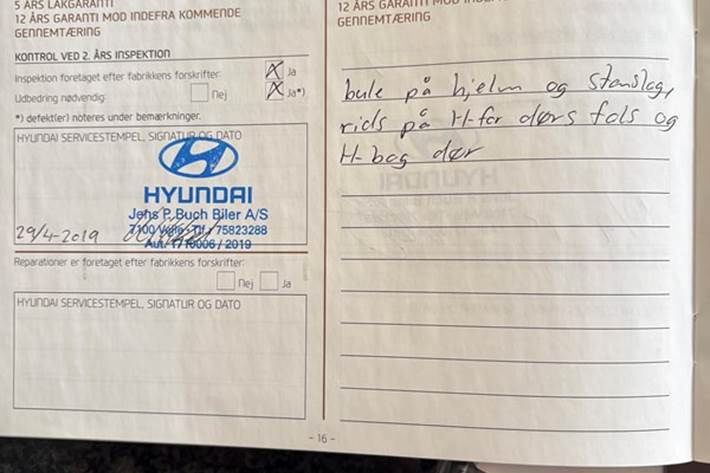 5 ÅRS LAKGARANTI
12 ÅRS GARANTI MOD INDEFRA KOMMENDE
GENNEMTÆRING
KONTROL VED 2. ÅRS INSPEKTION
Inspektion foretaget efter fabrikkens forskrifter: X Ja
Udbedring nødvendig: Nej X Ja*)
*) defekt(er) noteres under bemærkninger.
HYUNDAI SERVICESTEMPEL, SIGNATUR OG DATO
HYUNDAI
Jens P. Buch Biler A/S
7100 Vejle - Tlf.: 75823288
Aut. 1710006 / 2019
29/4-2019
Reparationer er foretaget efter fabrikkens forskrifter:
Nej Ja
HYUNDAI SERVICESTEMPEL, SIGNATUR OG DATO
- 16 -
12 ÅRS GARANTI MOD
GENNEMTÆRING
bule på hjelm og stenslag,
rids på H-for dørs fals og
H-bag dør